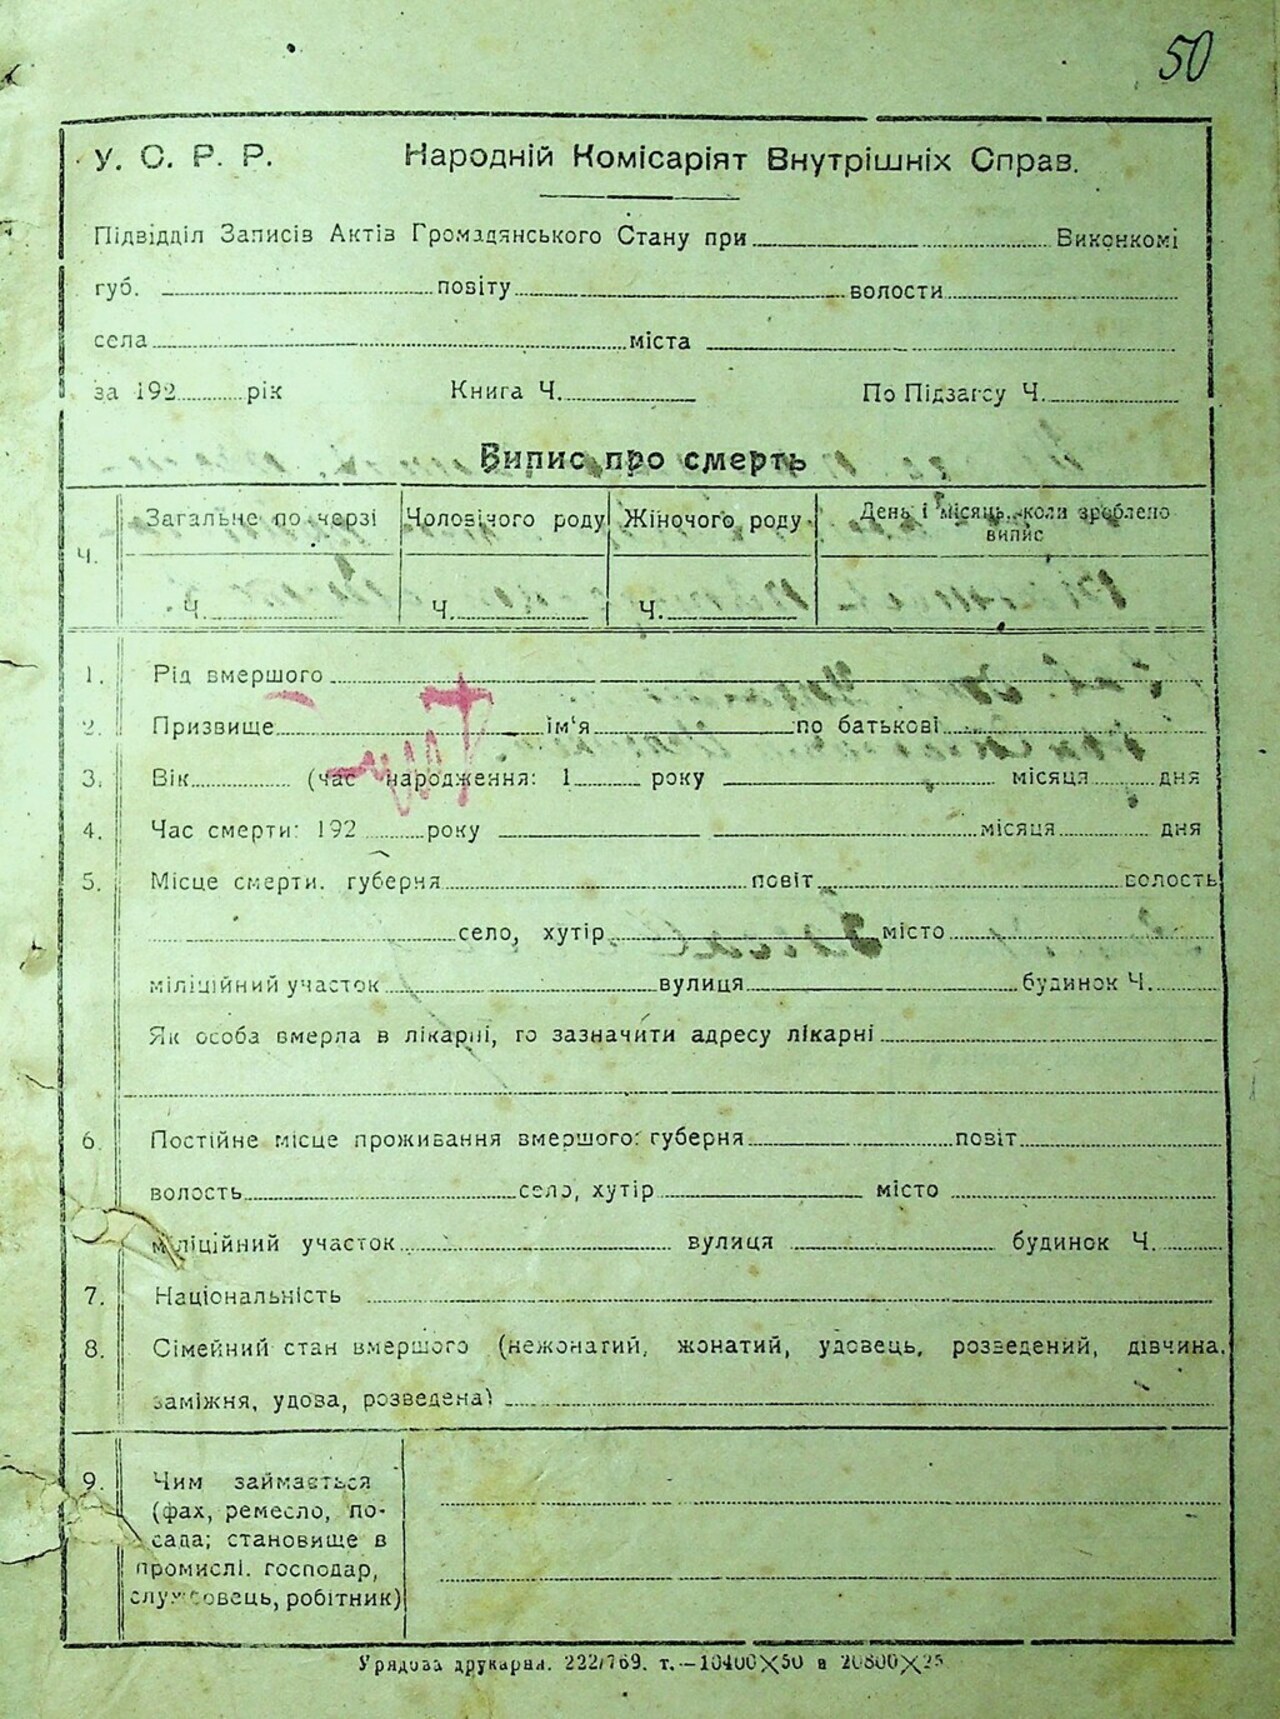 50
У. С. Р. Р. Народній Комісаріят Внутрішніх Справ.
Підвідділ Записів Актів Громадянського Стану при Виконкомі
губ. повіту волости
села міста
за 192 рік Книга Ч. По Підзагсу Ч.
Випис про смерть
Ч. Загальне по черзі Чоловічого роду Жіночого роду День і місяць, коли зроблено випис
Ч. Ч. Ч.
1. Рід вмершого
2. Призвище ім'я по батькові
3. Вік (час народження: 1 року місяця дня
4. Час смерти: 192 року місяця дня
5. Місце смерти. губерня повіт волость
село, хутір місто
міліційний участок вулиця будинок Ч.
Як особа вмерла в лікарні, го зазначити адресу лікарні
6. Постійне місце проживання вмершого: губерня повіт
волость село, хутір місто
міліційний участок вулиця будинок Ч.
7. Національність
8. Сімейний стан вмершого (нежонатий, жонатий, удовець, розведений, дівчина.
заміжня, удова, розведена)
9. Чим займається
(фах, ремесло, по-
сада; становище в
промислі. господар,
службовець, робітник)
Урядова друкарня. 222/769. т.—10400×50 в 20800×25